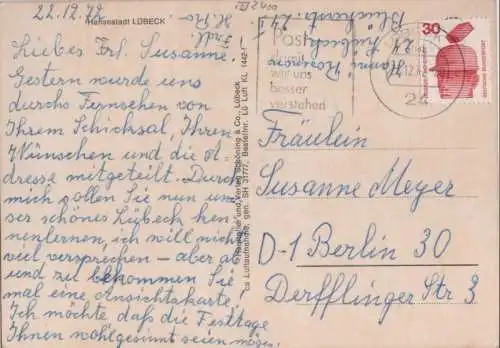 22.12.72
Hansestadt LÜBECK
Liebes Frl. Susanne!
Gestern wurde uns
durchs Fernsehen von
Ihrem Schicksal, Ihren
Wünschen und die A-
dresse mitgeteilt. Durch
mich sollen Sie nun un-
ser schönes Lübeck ken-
nenlernen, ich will nicht
viel versprechen - aber ab
und zu bekommen Sie
mal eine Ansichtskarte!
Ich möchte daß die Festtage
Ihnen wohlgesinnt seien mögen.
Verlag Schöning & Co., Lübeck
Luftaufnahme, gen. SH 31777, Bestellnr. Lü Luft KL. 1442
Lübeck 24
Post
wir uns
besser
verstehen
24
30
DEUTSCHE BUNDESPOST
Fräulein
Susanne Meyer
D-1 Berlin 30
Derfflinger Str 3